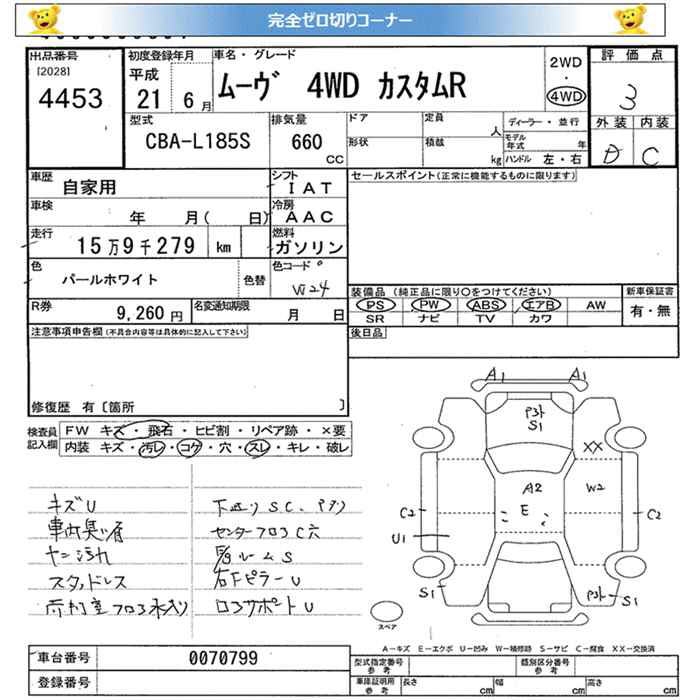 完全ゼロ切りコーナー
出品番号
[2028]
4453
初度登録年月
平成
21 6月
車名・グレード
ムーヴ 4WD カスタムR
2WD
・
4WD
評価点
3
外装 内装
D C
型式
CBA-L185S
排気量
660
CC
ドア
形状
定員
人
積載
kg
ディーラー・並行
モデル年式 年
ハンドル 左・右
車歴
自家用
シフト
IAT
車検
年 月( 日)
冷房
AAC
走行
15万9千279 km
燃料
ガソリン
色
パールホワイト
色替
色コードo
W24
R券
9,260円
名変通知期限
月 日
セールスポイント(正常に機能するものに限ります)
装備品 (純正品に限り○をつけてください)
PS PW ABS エアB AW
SR ナビ TV カワ
新車保証書
有・無
後日品
注意事項申告欄(不具合内容等は具体的に記入して下さい)
修復歴 有〔箇所 〕
検査員記入欄
FW キズ・飛石・ヒビ割・リペア跡・×要
内装 キズ・汚レ・コゲ・穴・スレ・キレ・破レ
キズU
車内臭い有
ヤニ汚れ
スタッドレス
下廻りSC、
センターフロアC穴
ルームS
右Fピラーu
コアサポートU
A1 A1
S1
XX
A2
E
W2
C2
C2
U1
S1
S1
スペア
A−キズ E−エクボ U−凹み W−補修跡 S−サビ C−腐食 XX−交換済
車台番号
0070799
登録番号
型式指定番号
参考
類別区分番号
参考
車庫証明用
参考
長さ cm
幅 cm
高さ cm